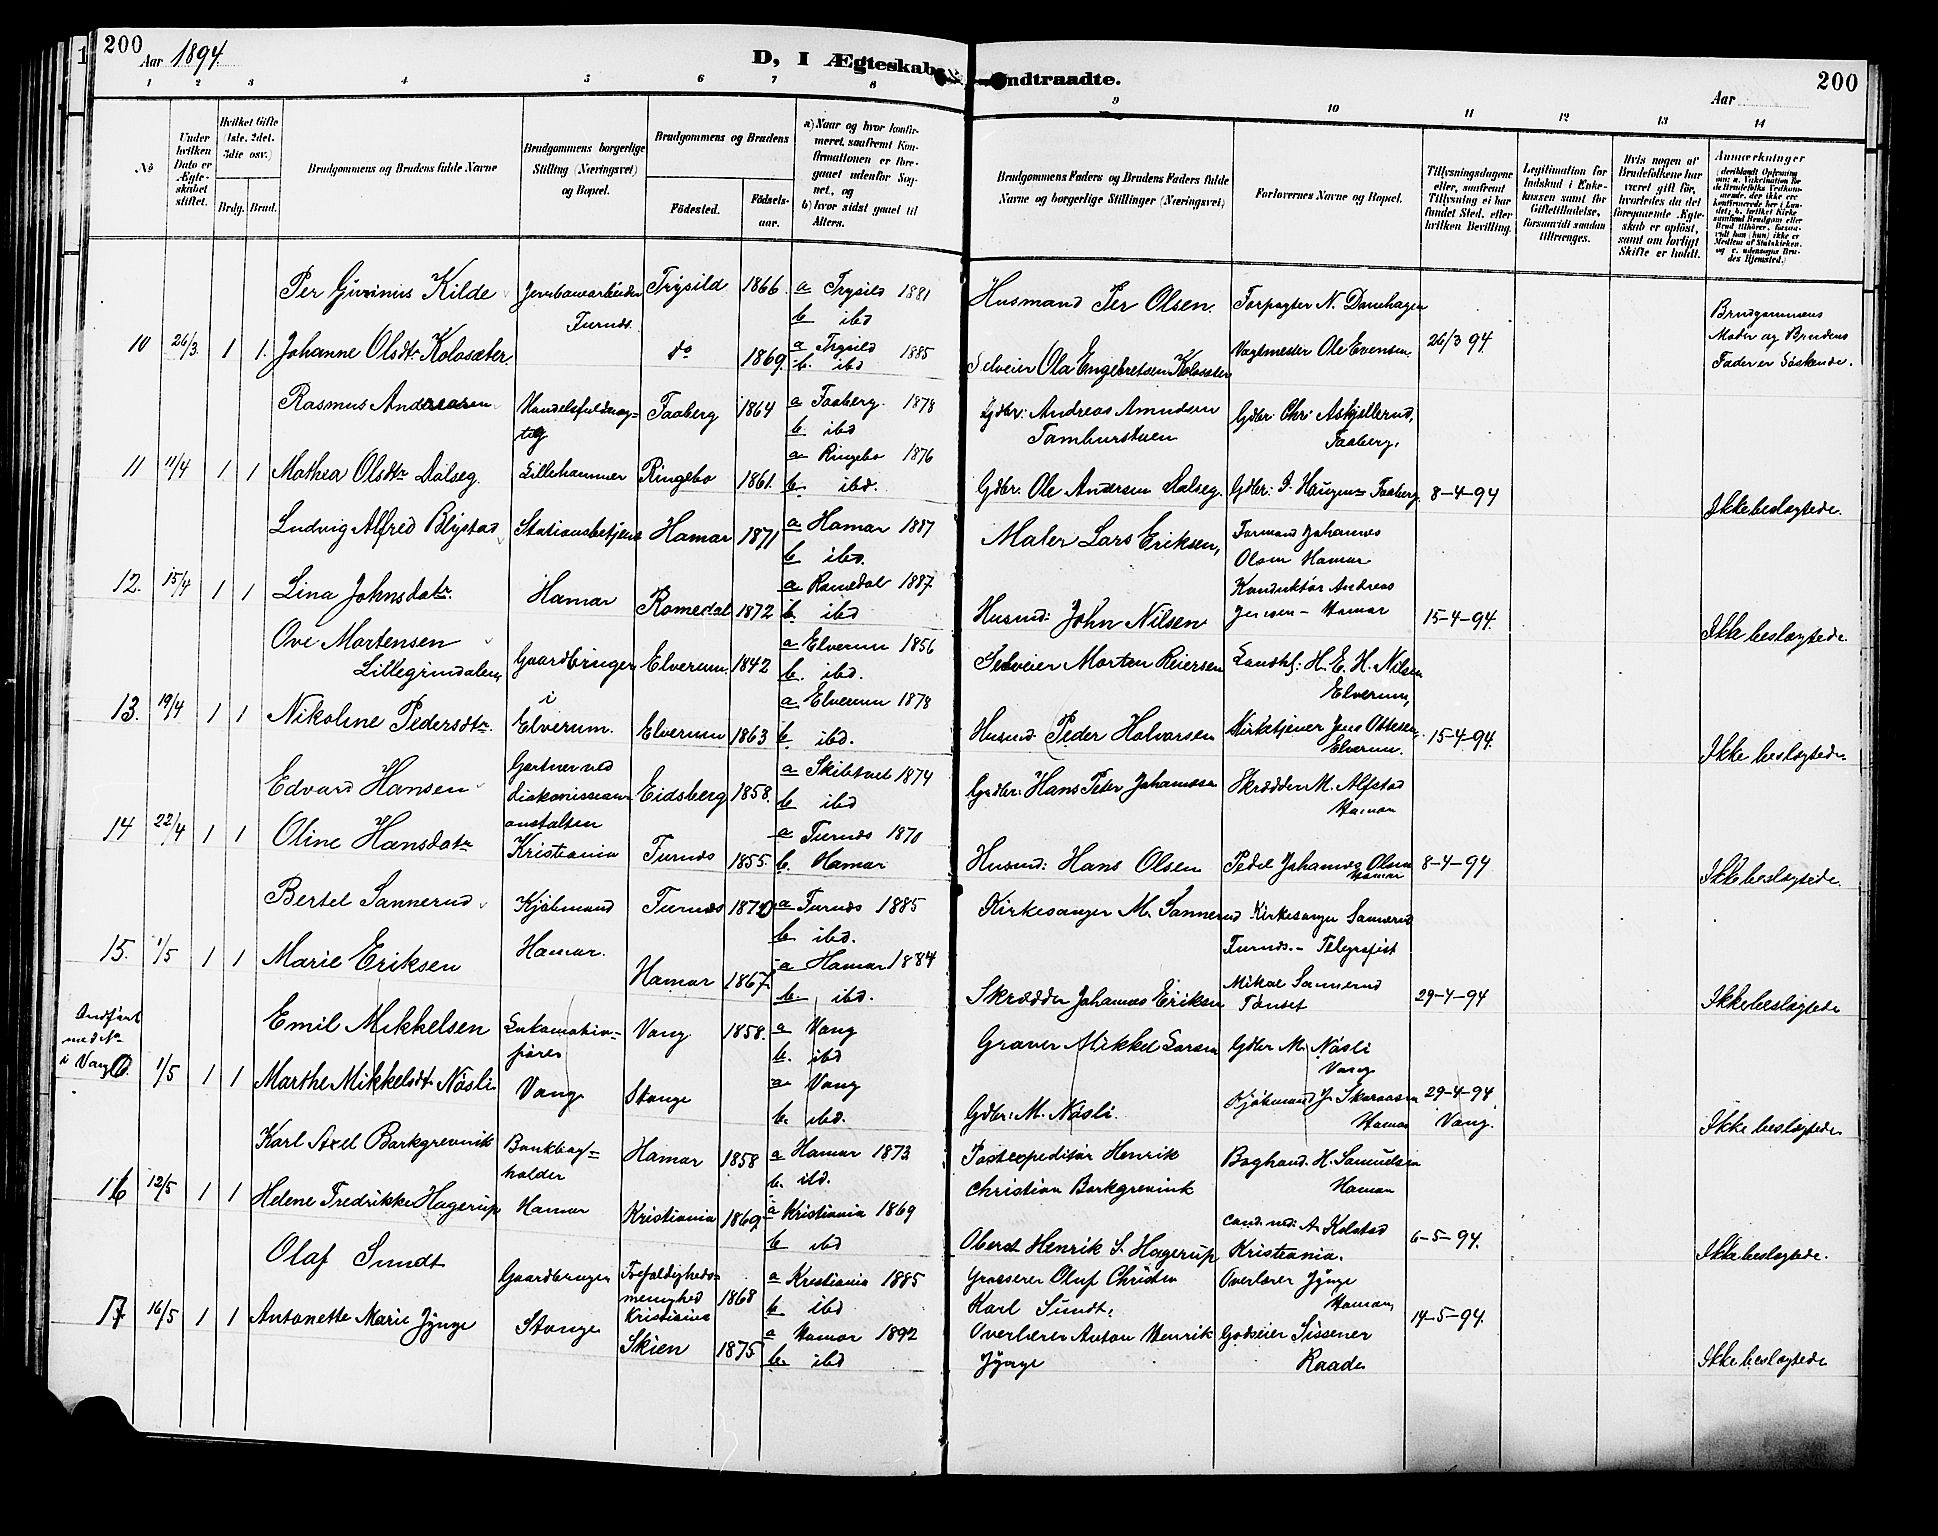 200
Aar 1894.
D, I Ægteskab
ndtraadte.
Aar
200
1 2 3 4 5 6 7 8
9 10 11 12 13 14
No
Under hvilken Dato er Ægteskabet stiftet.
Hvilket Gifte (1ste, 2det, 3die osv.)
Brdg. Brud.
Brudgommens og Brudens fulde Navne
Brudgommens borgerlige Stilling (Næringsvei) og Bopæl.
Brudgommens og Brudens
Fødested.
Fødselsaar.
a) Naar og hvor konfirmeret, saafremt Konfirmationen er foregaaet udenfor Sognet, og
b) hvor sidst gaaet til Alters.
Brudgommens Faders og Brudens Faders fulde Navne og borgerlige Stillinger (Næringsvei)
Forlovernes Navne og Bopæl.
Tillysningsdagene eller, saafremt Tillysning ei har fundet Sted, efter hvilken Bevilling.
Legitimation for Indskud i Enkekassen samt for Giftetilladelse, forsaavidt saadan tiltrænges.
Hvis nogen af Brudefolkene har været gift før, hvorledes da det foregaaende Ægteskab er opløst, samt om lovligt Skifte er holdt.
Anmærkninger
Per Kilde Trysild 1866. a Trysild 1881 Husmand Per Olsen.
b ibd
10 26/3 1 1. Johanne Olsdtr Kolosæter. do 1869. a Trysild 1885 Selveier Ola Engebretsen Kolosæter Vagtmester Ole Evensen. 26/3 94.
b. ibd
Brudgommens
Moder og Brudens
Fader er Søskende.
Rasmus Andreasen Handelsfuldmægtig Faaberg 1864 a Faaberg. 1878 Gdbr: Andreas Amundsen Gdbr: Chr: Askjellerud,
b. ibd Faaberg,
11 11/4 1 1 Mathea Olsdtr Dalseg. Lillehammer Ringebo 1861. a Ringebo 1876 Gdbr. Ole Andersen Dalseg. Gdbr: P. Haugen Faaberg 8-4-94 Ikke beslægtede.
b. ibd.
Ludvig Alfred Blystad Stationsbetjent Hamar 1871 a Hamar 1887 Maler Lars Eriksen, Formand Johannes
b ibd. Olsen Hamar
12. 15/4 1 1 Lina Johnsdatr. Hamar Romedal 1872 a Romedal 1887. Husmd: John Nilsen Konduktør Andreas
b. ibd Jensen - Hamar 15-4-94. Ikke beslægtede.
Ove Martensen Gaardbruger Elverum. 1842 a Elverum 1856 Selveier Morten Reiersen Landh: H. E. H. Nilsen
Lillegrindalen, i b. ibd. Elverum,
13. 19/4 1 1 Nikoline Pedersdtr. Elverum. Elverum 1863 a Elverum 1878 Husmd Peder Halvorsen Kirketjener Jens Ottesen 15-4-94. Ikke beslægtede.
b. ibd. Elverum.
Edvard Hansen Gartner ved Eidsberg 1858. a 1874 Gdbr: Hans Peter Johannesen Skrædder M. Alfstad
anstalten b ibd Hamar
14 22/4 1 1 Oline Hansdatr Kristiania Furnæs 1855. a Furnæs 1870 Husmd: Hans Olsen Pedel Johannes Olsen 8-4-94 Ikke beslægtede.
b. Hamar Hamar
Bertel Sannerud Kjøbmand Furnæs 1870 a Furnæs 1885 Kirkesanger M. Sannerud Kirkesanger Sannerud
b. ibd. Furnæs. - Telegrafist
15. 1/5 1 1 Marie Eriksen Hamar. Hamar 1867. a Hamar 1884 Skrædder Johannes Eriksen Mikal Sannerud
b. ibd. Tønset 29-4-94 Ikke beslægtede
Andført
med No
i Vang
Emil Mikkelsen Lokomotivfører Vang 1858. a Vang Graver Mikkel Larsen Gdbr M. Nøsli
b. ibd Vang
1/5 1 1 Marthe Mikkelsdtr Nøsli Vang Stange a Vang Gdbr: M. Nøsli. Kjøbmand J. 29-4-94
b. ibd. Hamar Vang. Ikke beslægtede
Karl Axel Borkgrevink Bankbogholder Hamar 1858 a Hamar 1873 Postexpeditør Henrik Boghand. H. Samuelsen
b. ibd. Christian Borkgrevink Hamar
16 12/5 1 1 Helene Fredrikke Hagerup Hamar Kristiania 1869. a Kristiania 1869 Oberst Henrik S. Hagerup Cand. A. Kolstad
b. ibd Kristiania. 6-5-94. Ikke beslægtede.
Olaf Sundt Gaardbruger Trefoldigheds 1868 a Kristiania 1885 Grosserer Oluf Christen Overlærer Jynge
menighed Kristiania b. ibd Karl Sundt, Hamar,
17 16/5 1 1 Antonette Marie Jynge Stange Skien 1875 a Hamar 1892 Overlærer Anton Henrik Godseier Sissener 14-5-94.
b. ibd Jynge Raade Ikke beslægtede